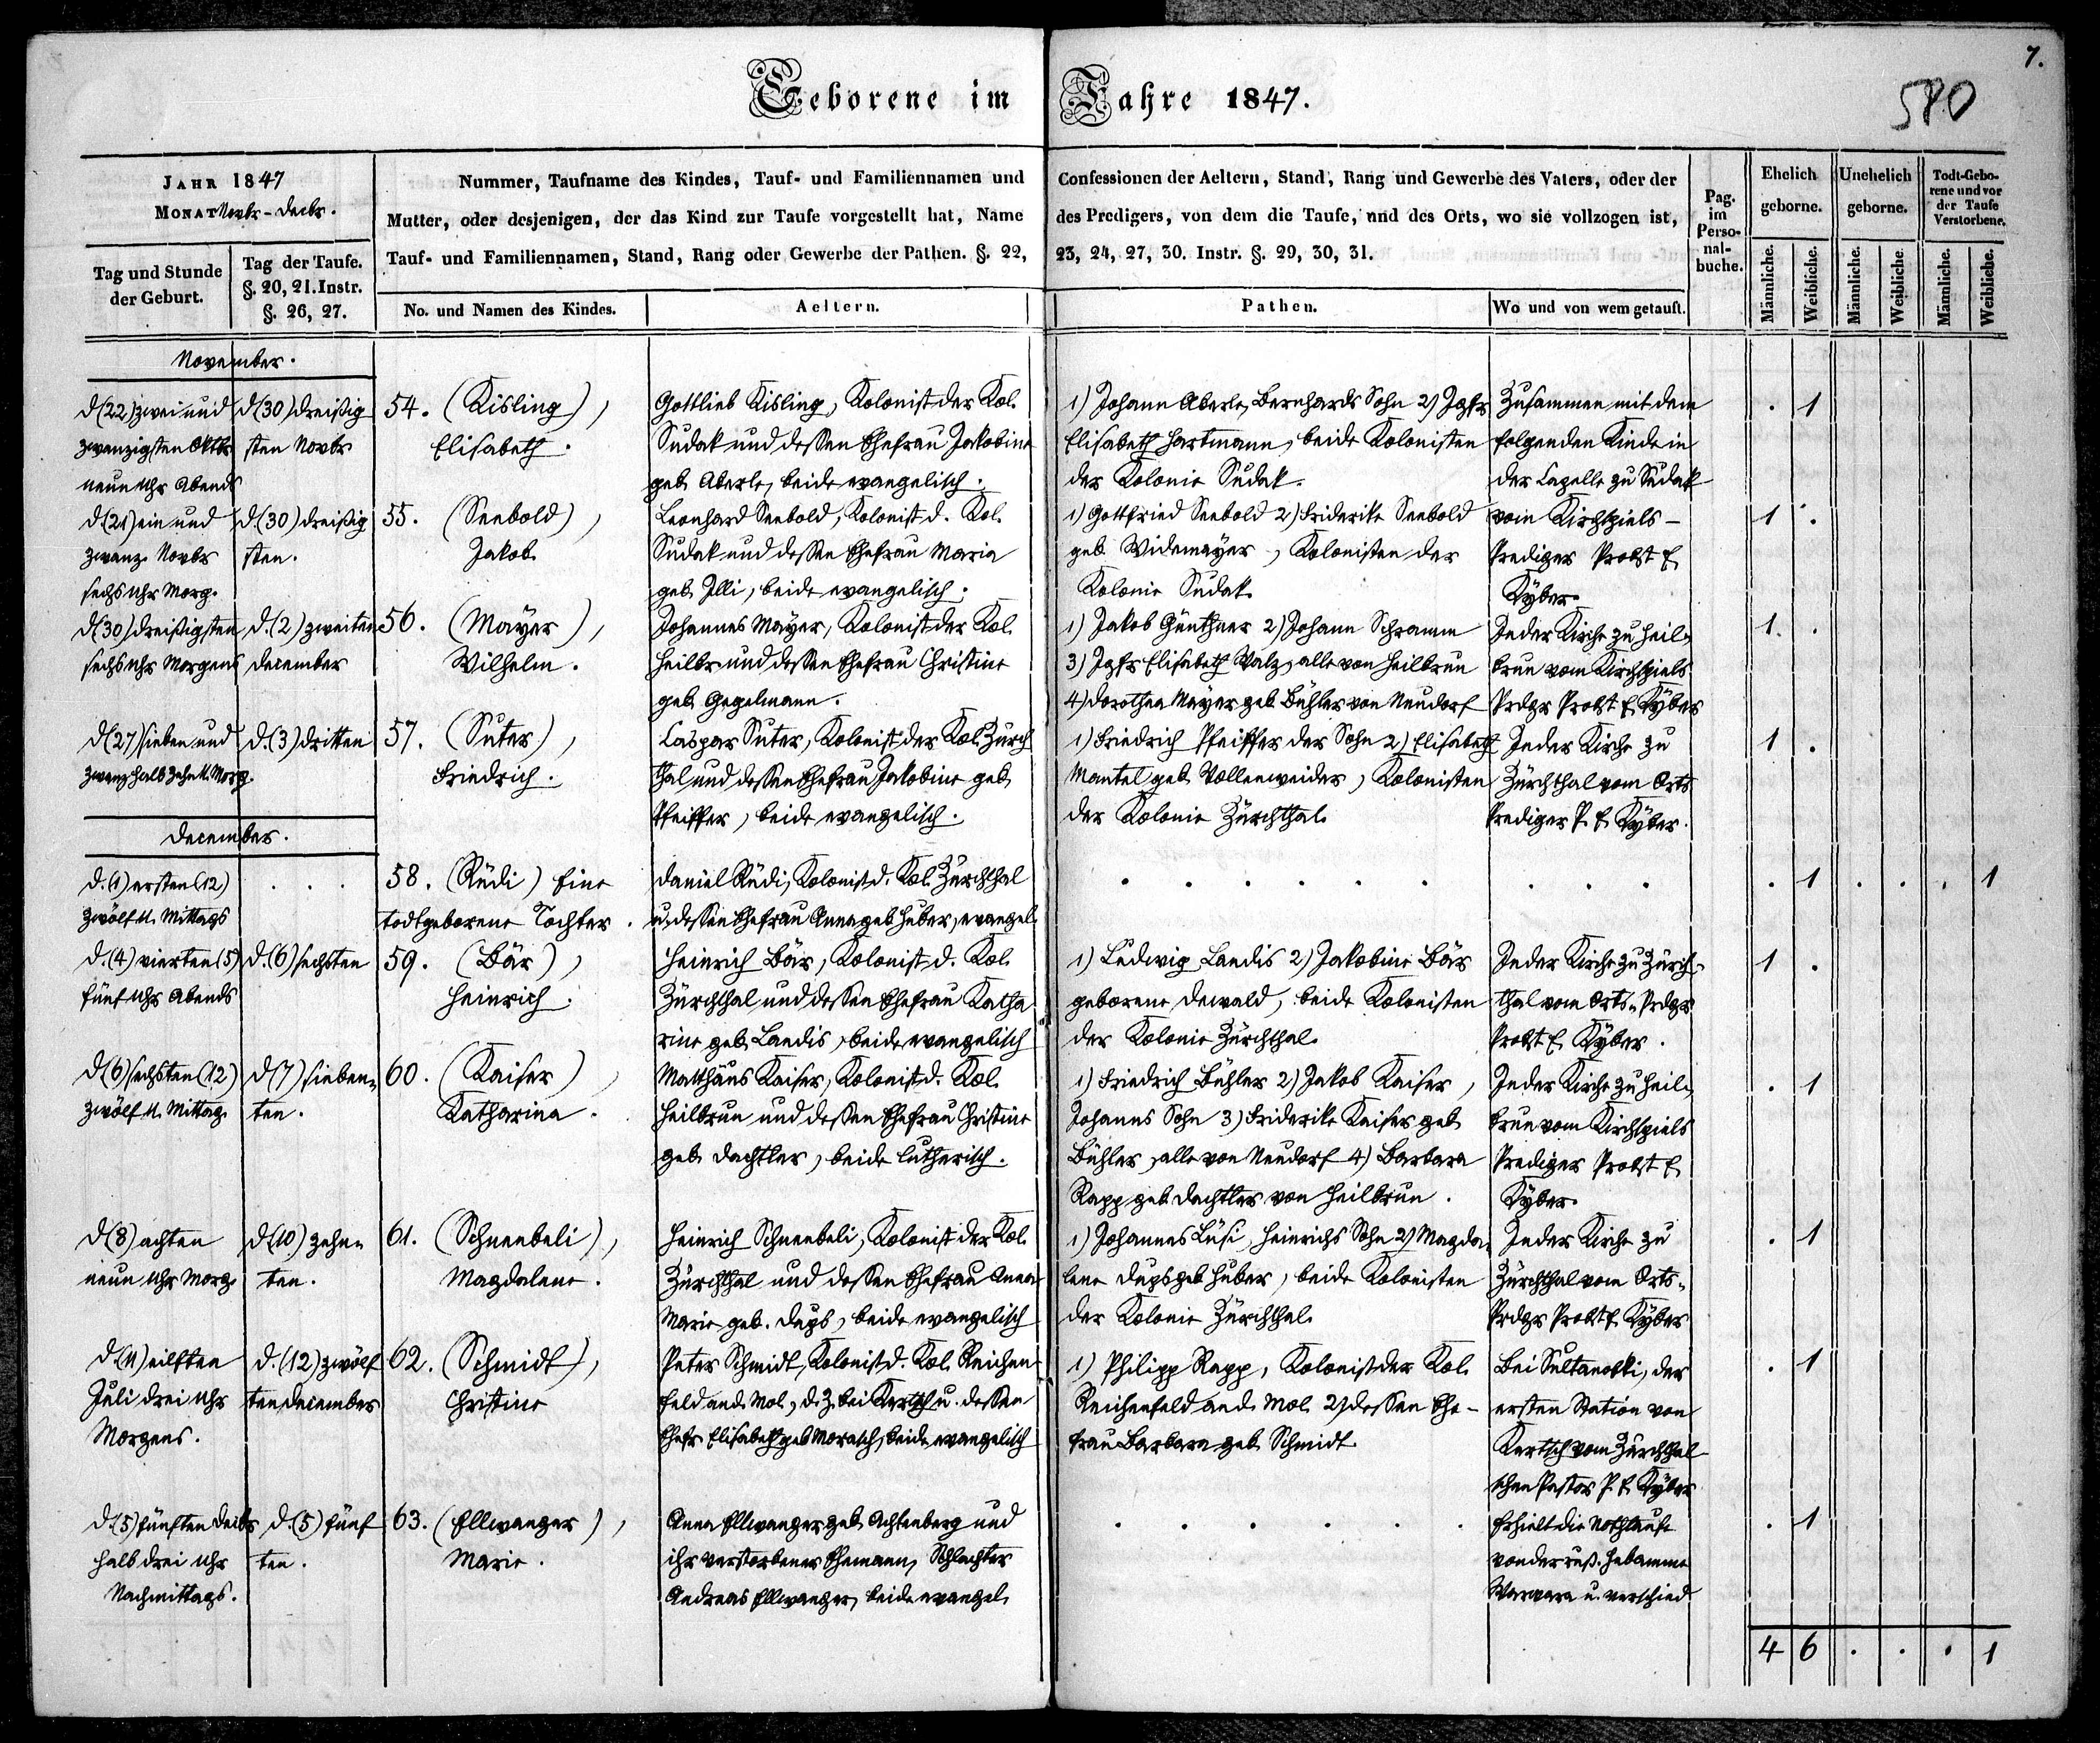 7.
580
Geborene im Jahre 1847.
JAHR 1847
MONAT Novbr - Decbr.
Tag und Stunde
der Geburt.
Tag der Taufe.
§. 20, 21. Instr.
§. 26, 27.
Nummer, Taufname des Kindes, Tauf- und Familiennamen und
Mutter, oder desjenigen, der das Kind zur Taufe vorgestellt hat, Name
Tauf- und Familiennamen, Stand, Rang oder Gewerbe der Pathen. §. 22,
No. und Namen des Kindes.
Aeltern.
Confessionen der Aeltern, Stand, Rang und Gewerbe des Vaters, oder der
des Predigers, von dem die Taufe, und des Orts, wo sie vollzogen ist,
23, 24, 27, 30. Instr. §. 29, 30, 31.
Pathen.
Wo und von wem getauft.
Pag.
im
Perso-
nal-
buche.
Ehelich
geborne.
Unehelich
geborne.
Todt-Gebo-
rene und vor
der Taufe
Verstorbene.
Männliche.
Weibliche.
Männliche.
Weibliche.
Männliche.
Weibliche.
November.
d (22) zwei und
zwanzigsten Oktbr
neun Uhr Abends
d (30) dreißig
sten Novbr
54. (Kisling),
Elisabeth.
Gottlieb Kisling, Kolonist der Kol.
Sudak und dessen Ehefrau Jakobine
geb. Aberle, beide evangelisch.
1) Johann Aberle, Bernhards Sohn 2) Jgfr
Elisabeth Hartmann, beide Kolonisten
der Kolonie Sudak.
Zusammen mit dem
folgenden Kinde in
der Capelle zu Sudak
. 1
d. (21) ein und
zwanz. Novbr
sechs Uhr Morg.
d. (30) dreißig
sten.
55. (Seebold),
Jakob.
Leonhard Seebold, Kolonist d. Kol.
Sudak und dessen Ehefrau Maria
geb. Illi, beide evangelisch.
1) Gottfried Seebold 2) Friderike Seebold
geb. Widemayer, Kolonisten der
Kolonie Sudak.
vom Kirchspiels-
Prediger Probst E.
Kyber.
1 .
d (30) dreißigsten
sechs Uhr Morgens
d. (2) zweiten
December
56. (Mayer),
Wilhelm.
Johannes Mayer, Kolonist der Kol.
Heilbr. und dessen Ehefrau Christine
geb. Gegelmann.
1) Jakob Günthner 2) Johann Schramm
3) Jgfr Elisabeth Walz, alle von Heilbrun
4) Dorothea Mayer geb. Bühler von Neudorf
In der Kirche zu Heil-
brun vom Kirchspiels
Prdgr Probst E. Kyber
1. .
d (27) sieben und
zwanz. halb zehn U. Morg.
d. (3) dritten
57. (Suter),
Friedrich.
Caspar Suter, Kolonist der Kol. Zürch
thal und dessen Ehefrau Jakobine geb.
Pfeiffer, beide evangelisch.
1) Friedrich Pfeiffer der Sohn 2) Elisabeth
Mantel geb. Vollenweider, Kolonisten
der Kolonie Zürchthal.
In der Kirche zu
Zürchthal vom Orts
Prediger P. E. Kyber.
1 .
December.
d. (1) ersten (12)
zwölf U. Mittags
. . .
58. (Rüdi) Eine
todtgeborene Tochter.
Daniel Rüdi, Kolonist d. Kol. Zürchthal
u. dessen Ehefrau Anna geb. Huber, evangel.
. . . . . .
. . .
. 1 . . . 1
d. (4) vierten (5)
fünf Uhr Abends
d. (6) sechsten
59. (Bär),
Heinrich.
Heinrich Bär, Kolonist d. Kol.
Zürchthal und dessen Ehefrau Katha
rine geb. Landis, beide evangelisch
1) Ludwig Landis 2) Jakobine Bär
geborene Dewald, beide Kolonisten
der Kolonie Zürchthal.
In der Kirche zu Zürch-
thal vom Orts-Prdgr
Probst E. Kyber.
1 .
d (6) sechsten (12)
zwölf U. Mittag.
d (7) sieben-
ten.
60. (Kaiser),
Katharina.
Matthäus Kaiser, Kolonist d. Kol.
Heilbrun und dessen Ehefrau Christine
geb. Dachtler, beide lutherisch.
1) Friedrich Bühler 2) Jakob Kaiser,
Johanns Sohn 3) Friderike Kaiser geb.
Bühler, alle von Neudorf 4) Barbara
Rapp geb. Dachtler von Heilbrun.
In der Kirche zu Heil-
brun vom Kirchspiels
Prediger Probst E.
Kyber.
. 1
d (8) achten
neun Uhr Morg.
d (10) zehn-
ten.
61. (Schneebeli),
Magdalene.
Heinrich Schneebeli, Kolonist der Kol.
Zürchthal und dessen Ehefrau Anna
Marie geb. Dups, beide evangelisch
1) Johannes Lüsi, Heinrichs Sohn 2) Magda-
lene Dups geb. Huber, beide Kolonisten
der Kolonie Zürchthal.
In der Kirche zu
Zürchthal vom Orts-
Prdgr Probst E. Kyber
. 1
d (11) eilften
Juli drei Uhr
Morgens.
d. (12) zwölf
ten December
62. (Schmidt),
Christine
Peter Schmidt, Kolonist d. Kol. Reichen
feld an d. Mol., d. Z. bei Kertsch u. dessen
Ehefr. Elisabeth geb. Morasch, beide evangelisch
1) Philipp Rapp, Kolonist der Kol.
Reichenfeld an d. Mol. 2) dessen Ehe-
frau Barbara geb. Schmidt.
Bei Sultanobki, der
ersten Station von
Kertsch vom Zürchthal
schen Pastor P. E. Kyber
. 1
d. (5) fünften Decbr
halb drei Uhr
Nachmittags.
d. (5) fünf
ten.
63. (Ellwanger),
Marie.
Anna Ellwanger geb. Achtenberg und
ihr verstorbener Ehemann, Schlachter
Andreas Ellwanger, beide evangel.
. . . . . .
Erhielt die Nothtaufe
von der russ. Hebamme
Warwara u. verschied
. 1
4 6 . . . 1